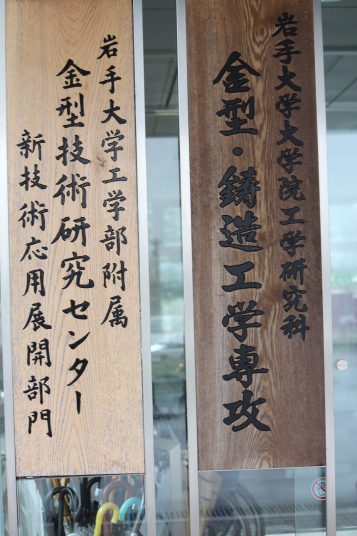 岩手大学大学院工学研究科
金型・鋳造工学専攻
岩手大学工学部附属
金型技術研究センター
新技術応用展開部門